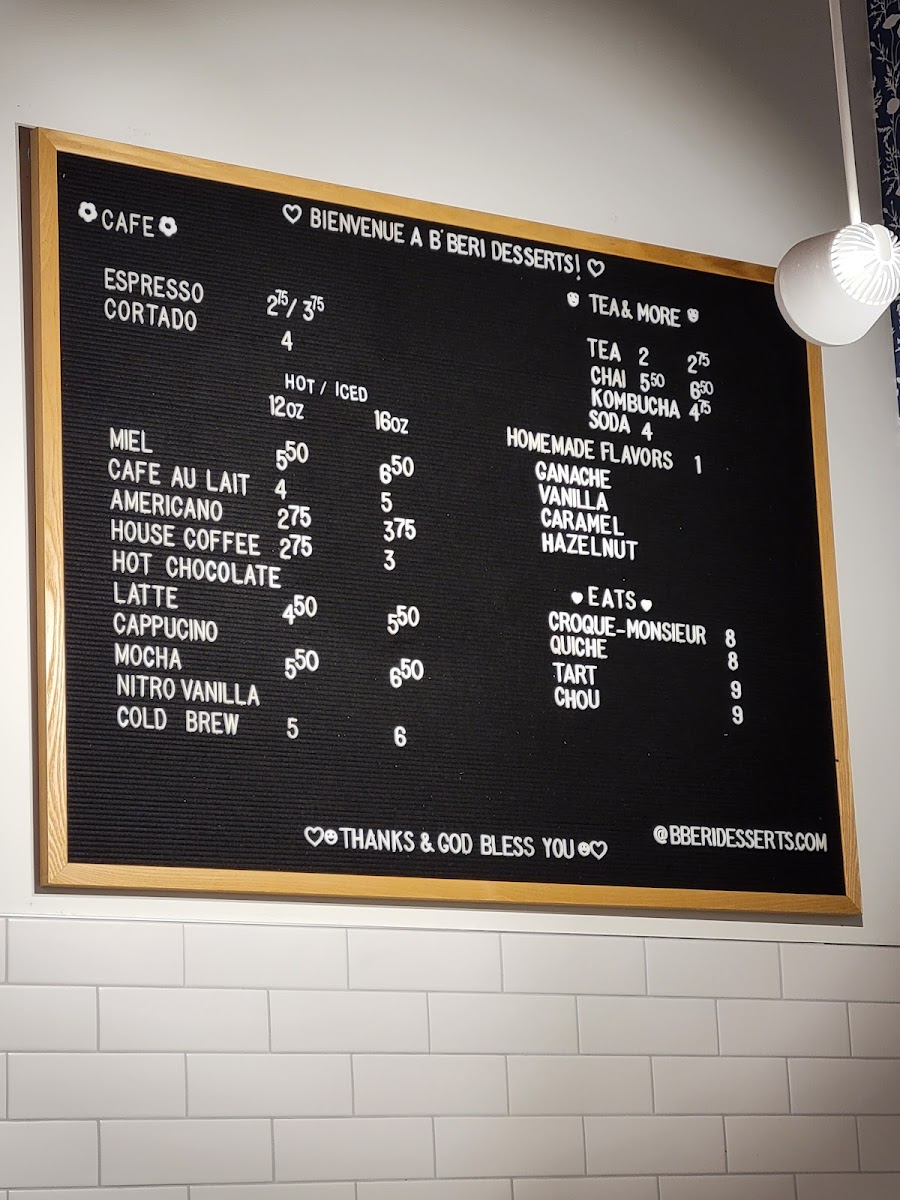 BIENVENUE A B'BERI DESSERTS!
CAFE
ESPRESSO 2⁷⁵/3⁷⁵
CORTADO 4
HOT / ICED
12OZ 16OZ
MIEL 5⁵⁰ 6⁵⁰
CAFE AU LAIT 4 5
AMERICANO 2⁷⁵ 3⁷⁵
HOUSE COFFEE 2⁷⁵ 3
HOT CHOCOLATE
LATTE 4⁵⁰ 5⁵⁰
CAPPUCINO
MOCHA 5⁵⁰ 6⁵⁰
NITRO VANILLA
COLD BREW 5 6
TEA & MORE
TEA 2 2⁷⁵
CHAI 5⁵⁰ 6⁵⁰
KOMBUCHA 4⁷⁵
SODA 4
HOMEMADE FLAVORS 1
GANACHE
VANILLA
CARAMEL
HAZELNUT
EATS
CROQUE-MONSIEUR 8
QUICHE 8
TART 9
CHOU 9
THANKS & GOD BLESS YOU
@BBERIDESSERTS.COM